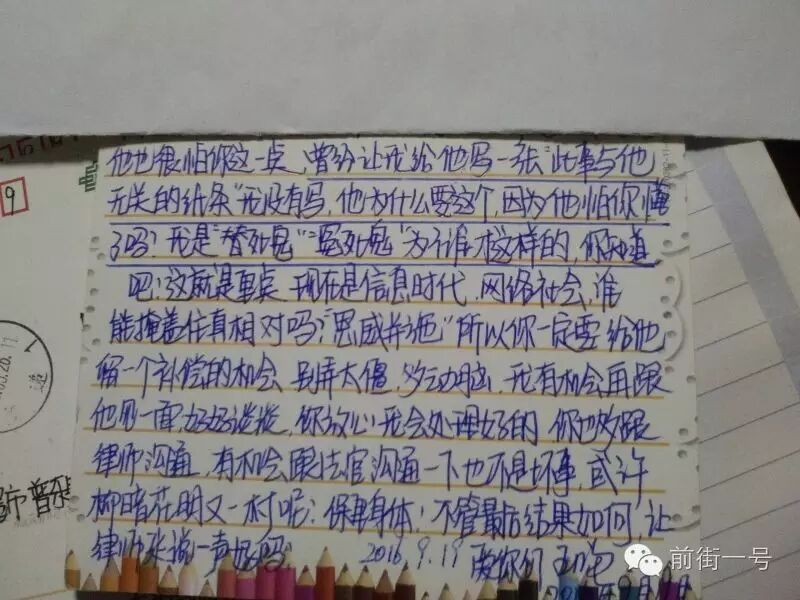 他也很怕你这一点,曾经让我给他写一张"此事与他
无关的纸条"我没有写,他为什么要这个,因为他怕你懂
了吗?我是"替死鬼""冤死鬼"为谁才这样的,你知道
吧!这就是重点 现在是信息时代,网络社会,谁
能掩盖住真相对吗?"恩威并施"所以你一定要给他
留一个补偿的机会 别弄太僵,多动脑,我有机会再跟
他见一面,好好谈谈,你放心我会处理好的 你也多跟
律师沟通,有机会跟法官沟通一下也不是坏事,或许
柳暗花明又一村呢?保重身体!不管最后结果如何,让
律师来说一声好吗 2016.9.19 爱你们
9
前街一号